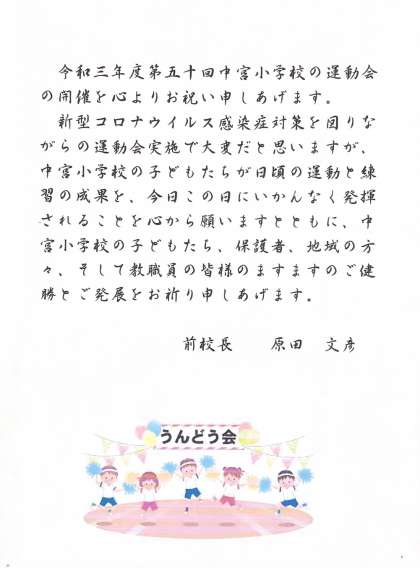 令和三年度第五十回中宮小学校の運動会
の開催を心よりお祝い申しあげます。
新型コロナウイルス感染症対策を図りな
がらの運動会実施で大変だと思いますが、
中宮小学校の子どもたちが日頃の運動と練
習の成果を、今日この日にいかんなく発揮
されることを心から願いますとともに、中
宮小学校の子どもたち、保護者、地域の方
々、そして教職員の皆様のますますのご健
勝とご発展をお祈り申しあげます。
前校長　原田　文彦
うんどう会